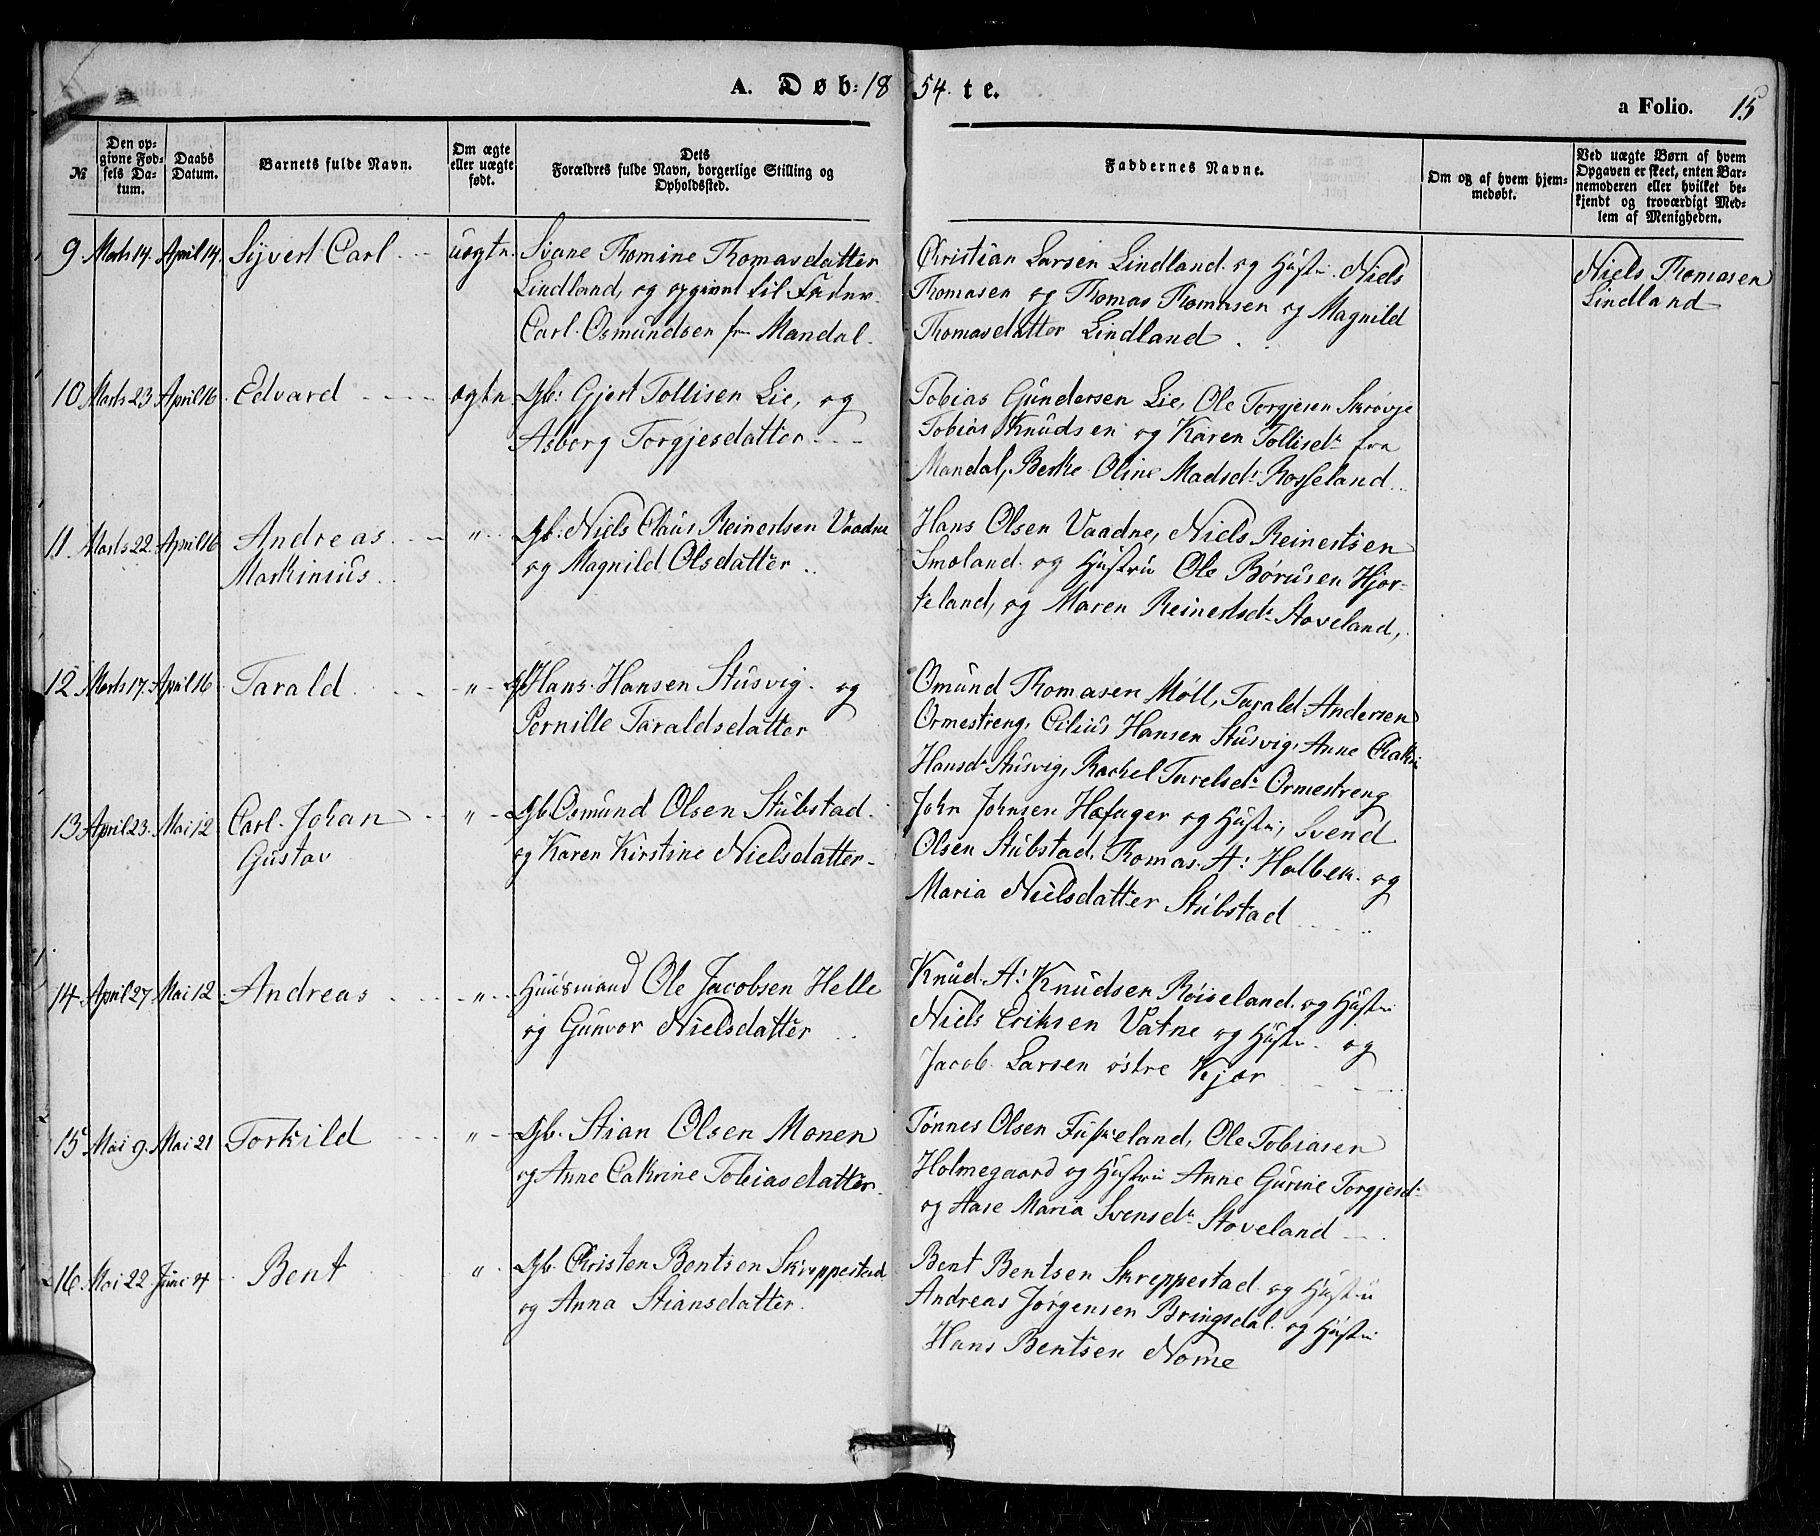 A. Døb: 1854. te.
a Folio. 15
№
Den opgivne Fødsels Datum.
Daabs Datum.
Barnets fulde Navn.
Om ægte eller uægte født.
Dets Forældres fulde Navn, borgerlige Stilling og Opholdssted.
Faddernes Navne.
Om og af hvem hjemmedøbt.
Ved uægte Børn af hvem Opgaven er skeet, enten Barnemoderen eller hvilket bekjendt og troværdigt Medlem af Menigheden.
9 Marts 14. April 14. Sijvert Carl uægtn.
Siane Thomine Thomasdatter
Lindland, og opgivet til Fader
Carl Osmundsen fra Mandal.
Christian Larsen Lindland og Hustru Niels
Thomasen og Thomas Thomasen og Magnild
Thomasdatter Lindland
Niels Thomasen
Lindland
10 Marts 23 April 16 Edvard ægtn
Gb: Gjert Tollisen Lie, og
Asborg Torgjesdatter
Tobias Gundersen Lie, Ole Torgjesen Skrøvje
Tobias Knudsen og Karen Tollisdr fra
Mandal, Berthe Oline Madsdr Rosseland
11. Marts 22. April 16 Andreas "
Markinius
Gb. Niels Claus Reinertsen Vaadne
og Magnild Olsdatter
Hans Olsen Vaadne, Niels Reinertsen
Smoland og Hustru Ole Børusen Hjor-
teland, og Maren Reinertsdr Stoveland,
12 Marts 17. April 16 Tarald "
Gb Hans Hansen Stusvig og
Pernille Taraldsdatter
Omund Thomasen Møll, Tarald Andersen
Ormestreng, Cilius Hansen Stusvig, Anne Cathr
Hansdr Stusvig, Rachel Tarelsdr Ormestreng
13 April 23. Mai 12 Carl Johan "
Gustav
Gb Osmund Olsen Stubstad
og Karen Kirstine Nielsdatter
John Johnsen Hæfager og Hustru, Svend
Olsen Stubstad, Thomas A: Holbek og
Maria Nielsdatter Stubstad
14. April 27 Mai 12 Andreas "
Huusmand Ole Jacobsen Helle
og Gunvor Nielsdatter
Knud A: Knudsen Røiseland og Hustru
Niels Eriksen Vatne og Hustru og
Jacob Larsen østre Kjær
15 Mai 9. Mai 21 Torkild "
Gb. Stian Olsen Monen
og Anne Cathrine Tobiasdatter
Tønnes Olsen Fuskeland, Ole Tobiasen
Holmegaard og Hustru Anne Gurine Torgjesdr
og Aase Maria Svensdr Stoveland
16. Mai 22 Juni 4 Bent "
Gb. Christen Bentsen Skreppestad
og Anna Stiansdatter.
Bent Bentsen Skreppestad og Hustru
Andreas Jørgensen Bringsdal og Hustru
Hans Bentsen Nome